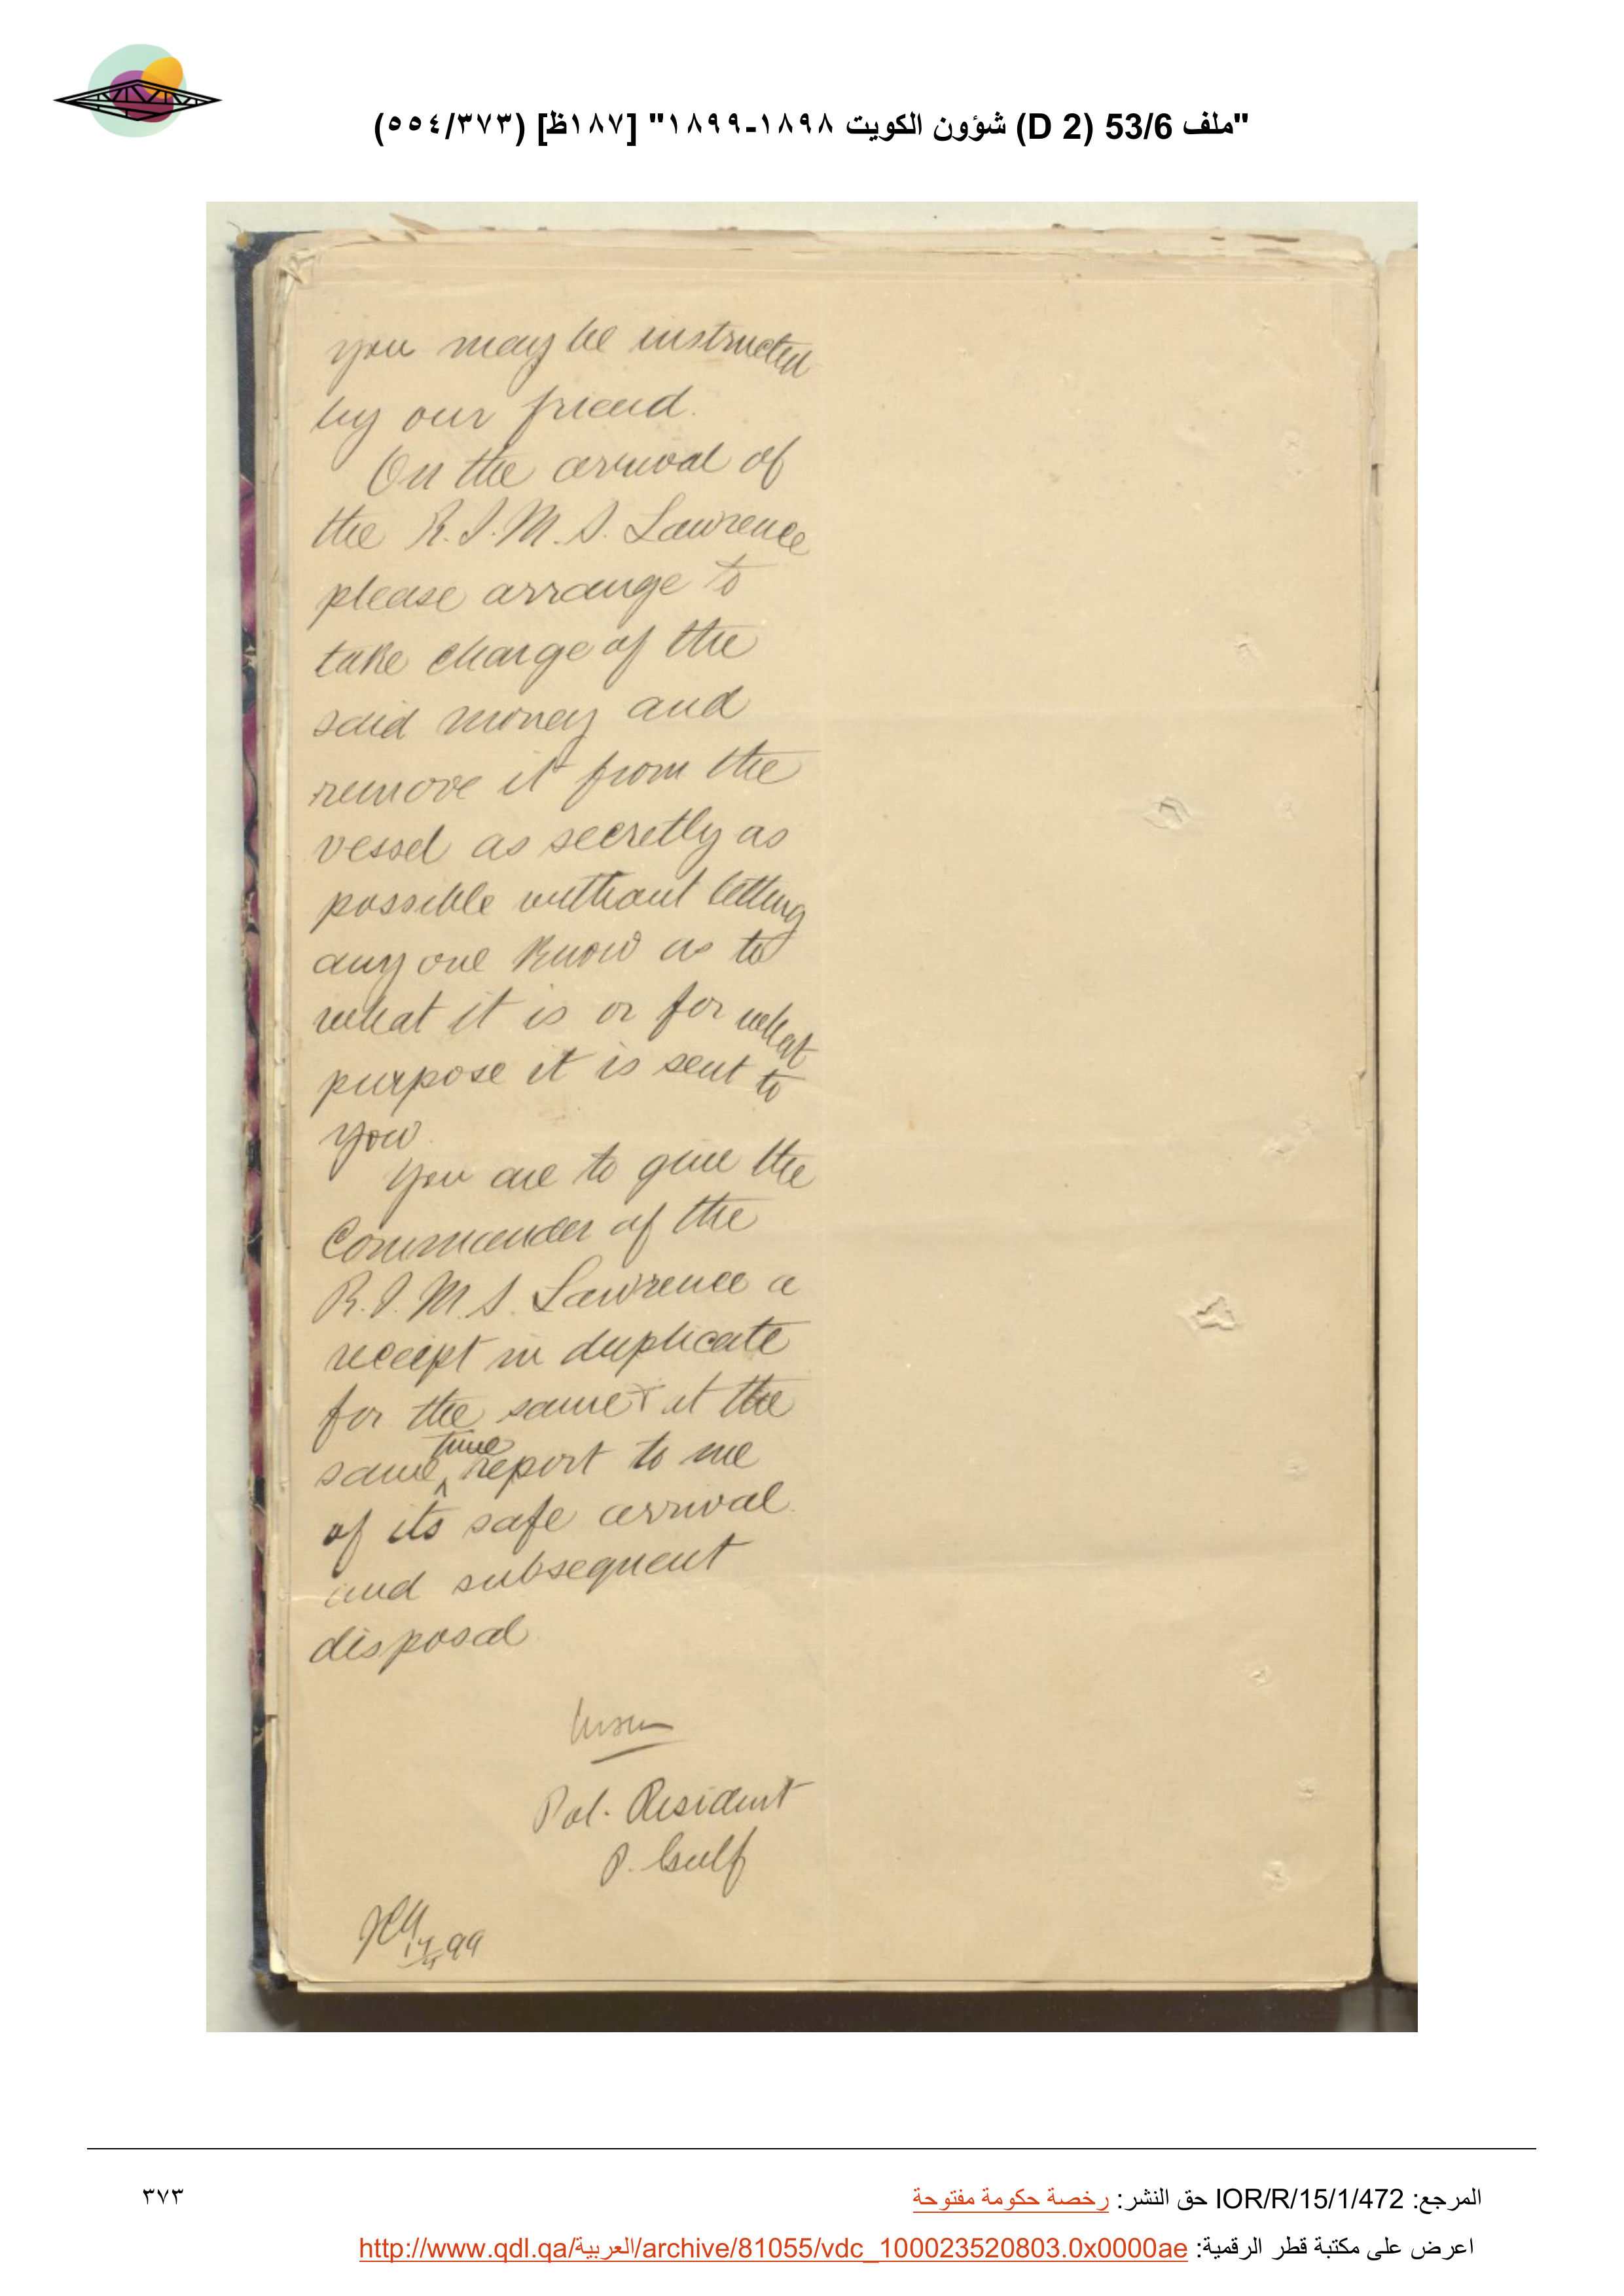 "ملف 53/6 (D 2) شؤون الكويت ١٨٩٨-١٨٩٩" [١٨٧ظ] (٥٥٤/٣٧٣)
you may be instructed
by our friend.
On the arrival of
the R.I.M.S. Lawrence
please arrange to
take charge of the
said money and
remove it from the
vessel as secretly as
possible without letting
any one know as to
what it is or for what
purpose it is sent to
you.
You are to give the
Commander of the
R.I.M.S. Lawrence a
receipt in duplicate
for the same & at the
same time report to me
of its safe arrival
and subsequent
disposal
Pol. Resident
P. Gulf
99
المرجع: IOR/R/15/1/472 حق النشر: رخصة حكومة مفتوحة
٣٧٣
اعرض على مكتبة قطر الرقمية: http://www.qdl.qa/العربية/archive/81055/vdc_100023520803.0x0000ae